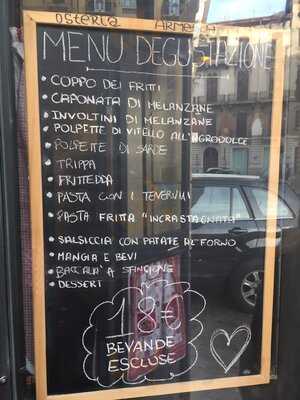 Osteria Armenda
MENÙ DEGUSTAZIONE
• COPPO DEI FRITTI
• CAPONATA DI MELANZANE
• INVOLTINI DI MELANZANE
• POLPETTE DI VITELLO ALL'AGRODOLCE
• POLPETTE DI SARDE
• TRIPPA
• FRITTEDDA
• PASTA CON I TENERUMI
• PASTA FRITTA "INCRASTAGNATA"
• SALSICCIA CON PATATE AL FORNO
• MANGIA E BEVI
• BACCALÀ A SFINCIONE
• DESSERT
18€
BEVANDE
ESCLUSE